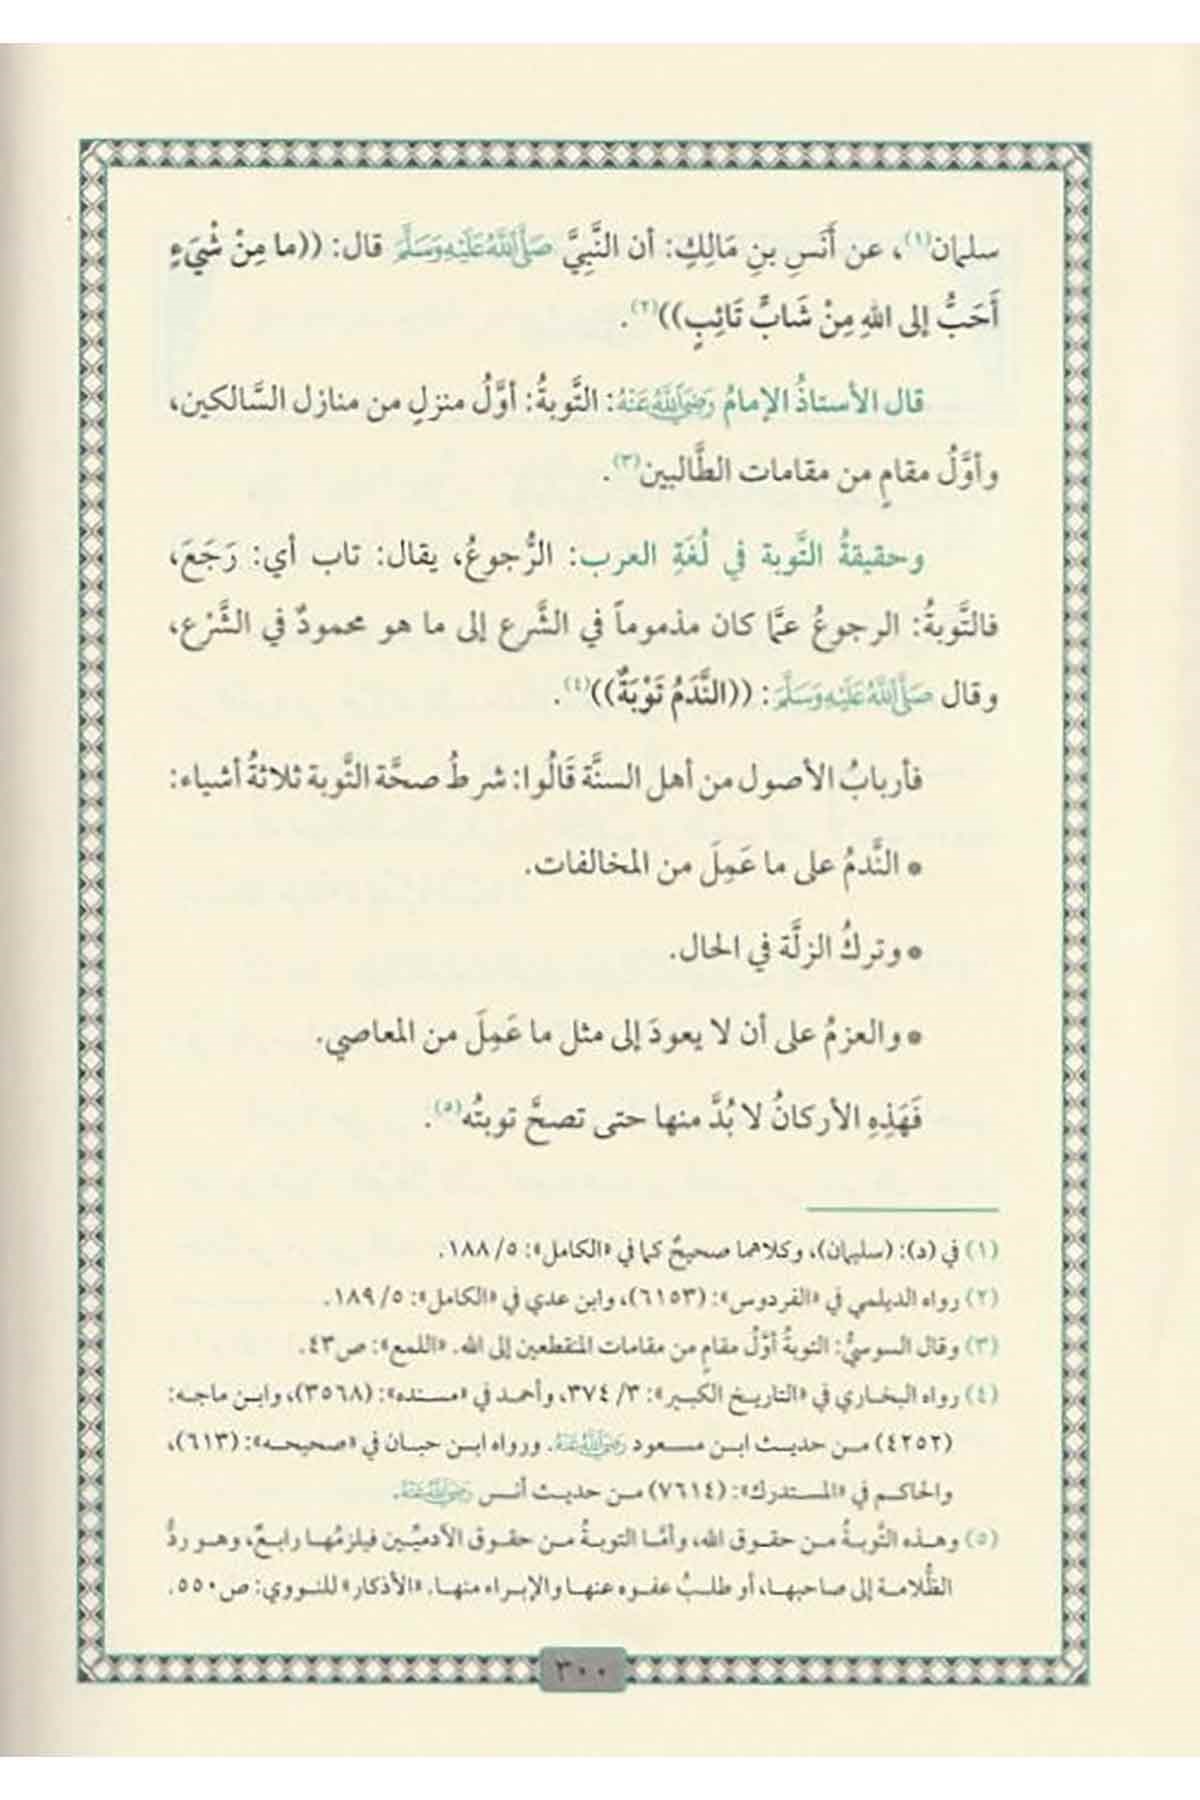 سلمان(١)، عن أَنَسِ بنِ مَالِكٍ: أن النَّبِيَّ صَلَّى اللَّهُ عَلَيْهِ وَسَلَّمَ قال: ((ما مِنْ شْيَءٍ
أَحَبُّ إلى اللهِ مِنْ شَابٍّ تَائِبٍ))(٢).
قال الأستاذُ الإمامُ رَضِيَ اللَّهُ عَنْهُ: التَّوبةُ: أوَّلُ منزلٍ من منازل السَّالكين،
وأوَّلُ مقامٍ من مقامات الطَّالبين(٣).
وحقيقةُ التَّوبة في لُغَةِ العرب: الرُّجوعُ، يقال: تاب أي: رَجَعَ،
فالتَّوبةُ: الرجوعُ عمَّا كان مذموماً في الشَّرع إلى ما هو محمودٌ في الشَّرْع،
وقال صَلَّى اللَّهُ عَلَيْهِ وَسَلَّمَ: ((النَّدَمُ تَوْبَةٌ))(٤).
فأربابُ الأصول من أهل السنَّة قَالُوا: شرطُ صحَّة التَّوبة ثلاثةُ أشياء:
* النَّدمُ على ما عَمِلَ من المخالفات.
* وتركُ الزلَّة في الحال.
* والعزمُ على أن لا يعودَ إلى مثل ما عَمِلَ من المعاصي.
فَهَذِهِ الأركانُ لا بُدَّ منها حتى تصحَّ توبتُه(٥).
(١) في (د): (سليمان)، وكلاهما صحيحٌ كما في «الكامل»: ٥/ ١٨٨.
(٢) رواه الديلمي في «الفردوس»: (٦١٥٣)، وابن عدي في «الكامل»: ٥/ ١٨٩.
(٣) وقال السوسيُّ: التوبةُ أوَّلُ مقامٍ من مقامات المنقطعين إلى الله. «اللمع»: ص٤٣.
(٤) رواه البخاري في «التاريخ الكبير»: ٣/ ٣٧٤، وأحمد في «مسنده»: (٣٥٦٨)، وابن ماجه:
(٤٢٥٢) من حديث ابن مسعود رَضِيَ اللَّهُ عَنْهُ. ورواه ابن حبان في «صحيحه»: (٦١٣)،
والحاكم في «المستدرك»: (٧٦١٤) من حديث أنس رَضِيَ اللَّهُ عَنْهُ.
(٥) وهذه التَّوبةُ من حقوق الله، وأمَّا التوبةُ من حقوق الآدميِّين فيلزمُها رابعٌ، وهو ردُّ
الظُّلامة إلى صاحبها، أو طلبُ عفوه عنها والإبراء منها. «الأذكار» للنووي: ص٥٥٠.
٣٠٠